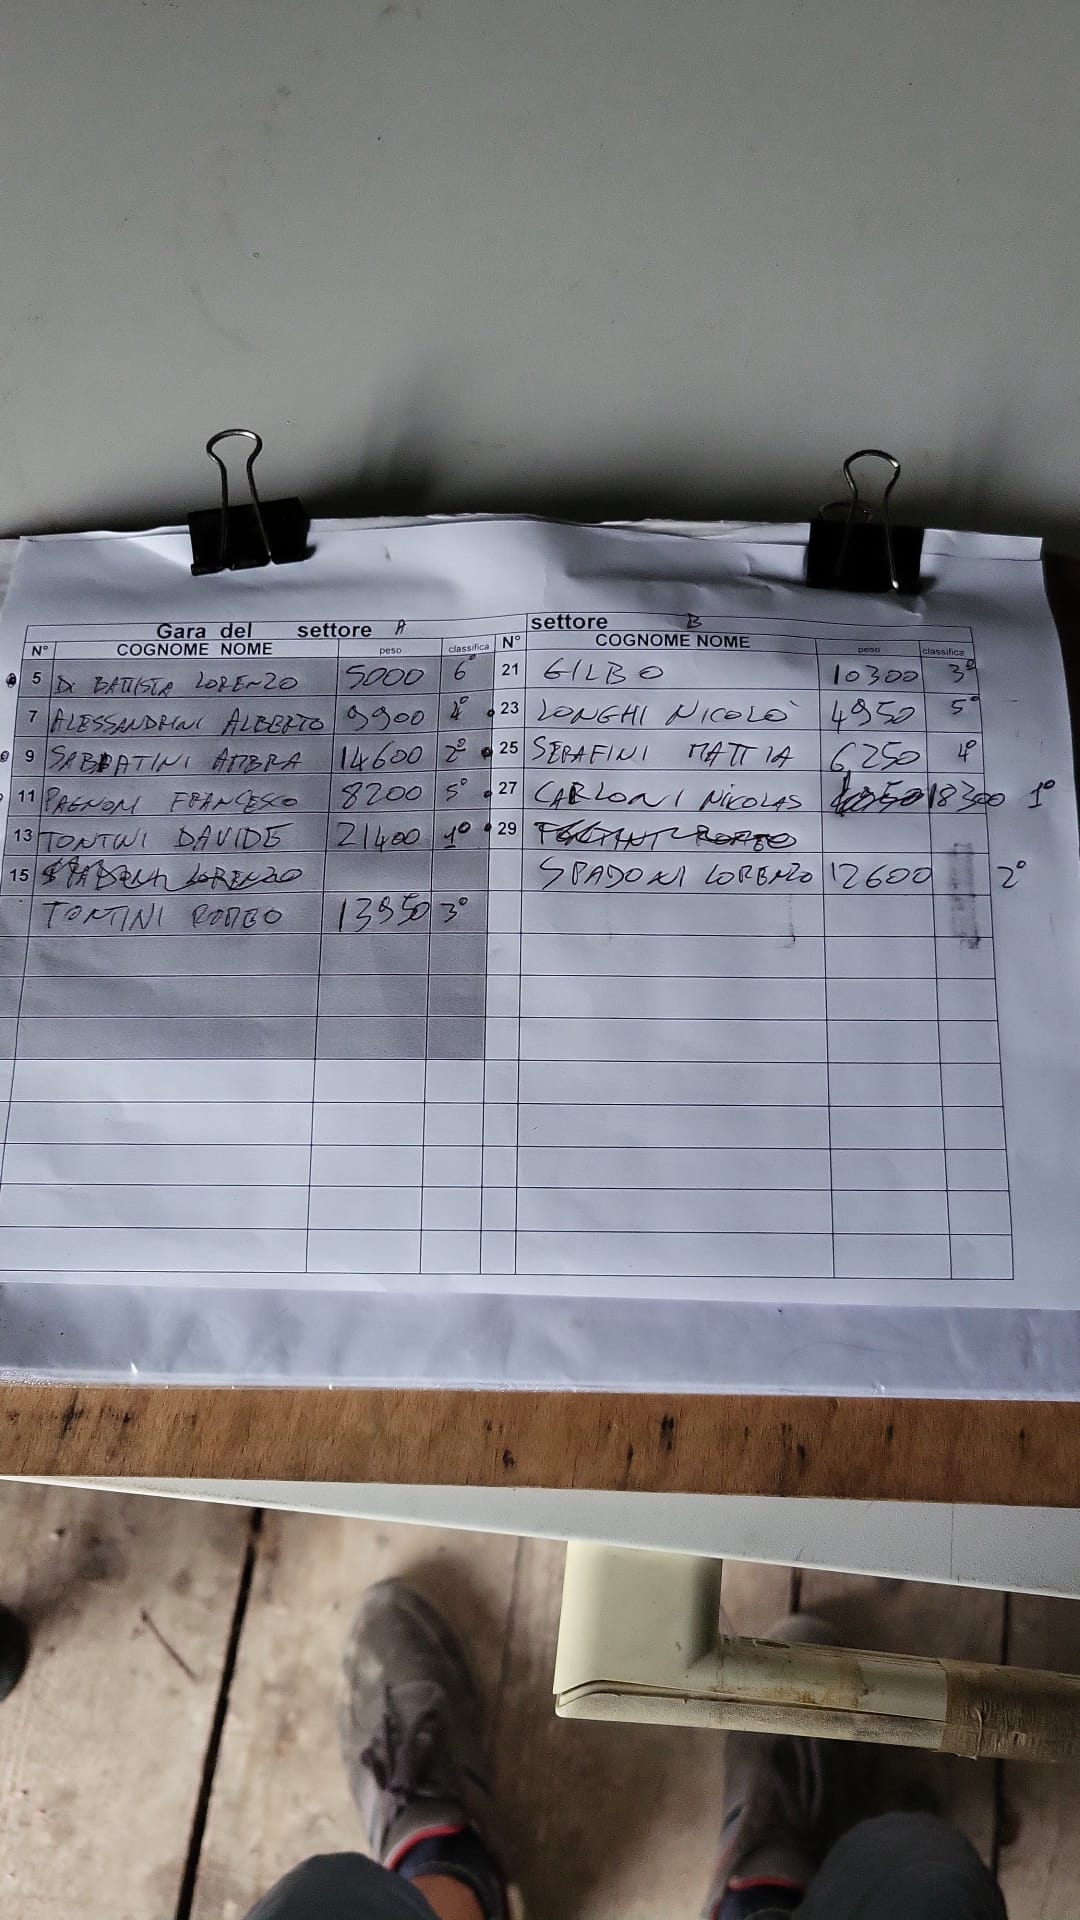 Gara del settore A settore B
N° COGNOME NOME peso classifica N° COGNOME NOME peso classifica
5 DI BATTISTA LORENZO 5000 6° 21 GILBO 10300 3°
7 ALESSANDRINI ALBERTO 9900 4° 23 LONGHI NICOLÒ 4950 5°
9 SABBATINI AMBRA 14600 2° 25 SERAFINI MATTIA 6250 4°
11 PAGNONI FRANCESCO 8200 5° 27 CARLONI NICOLAS 18300 1°
13 TONTINI DAVIDE 21400 1° 29
15 LORENZO SPADONI LORENZO 12600 2°
TONTINI ROMEO 13950 3°